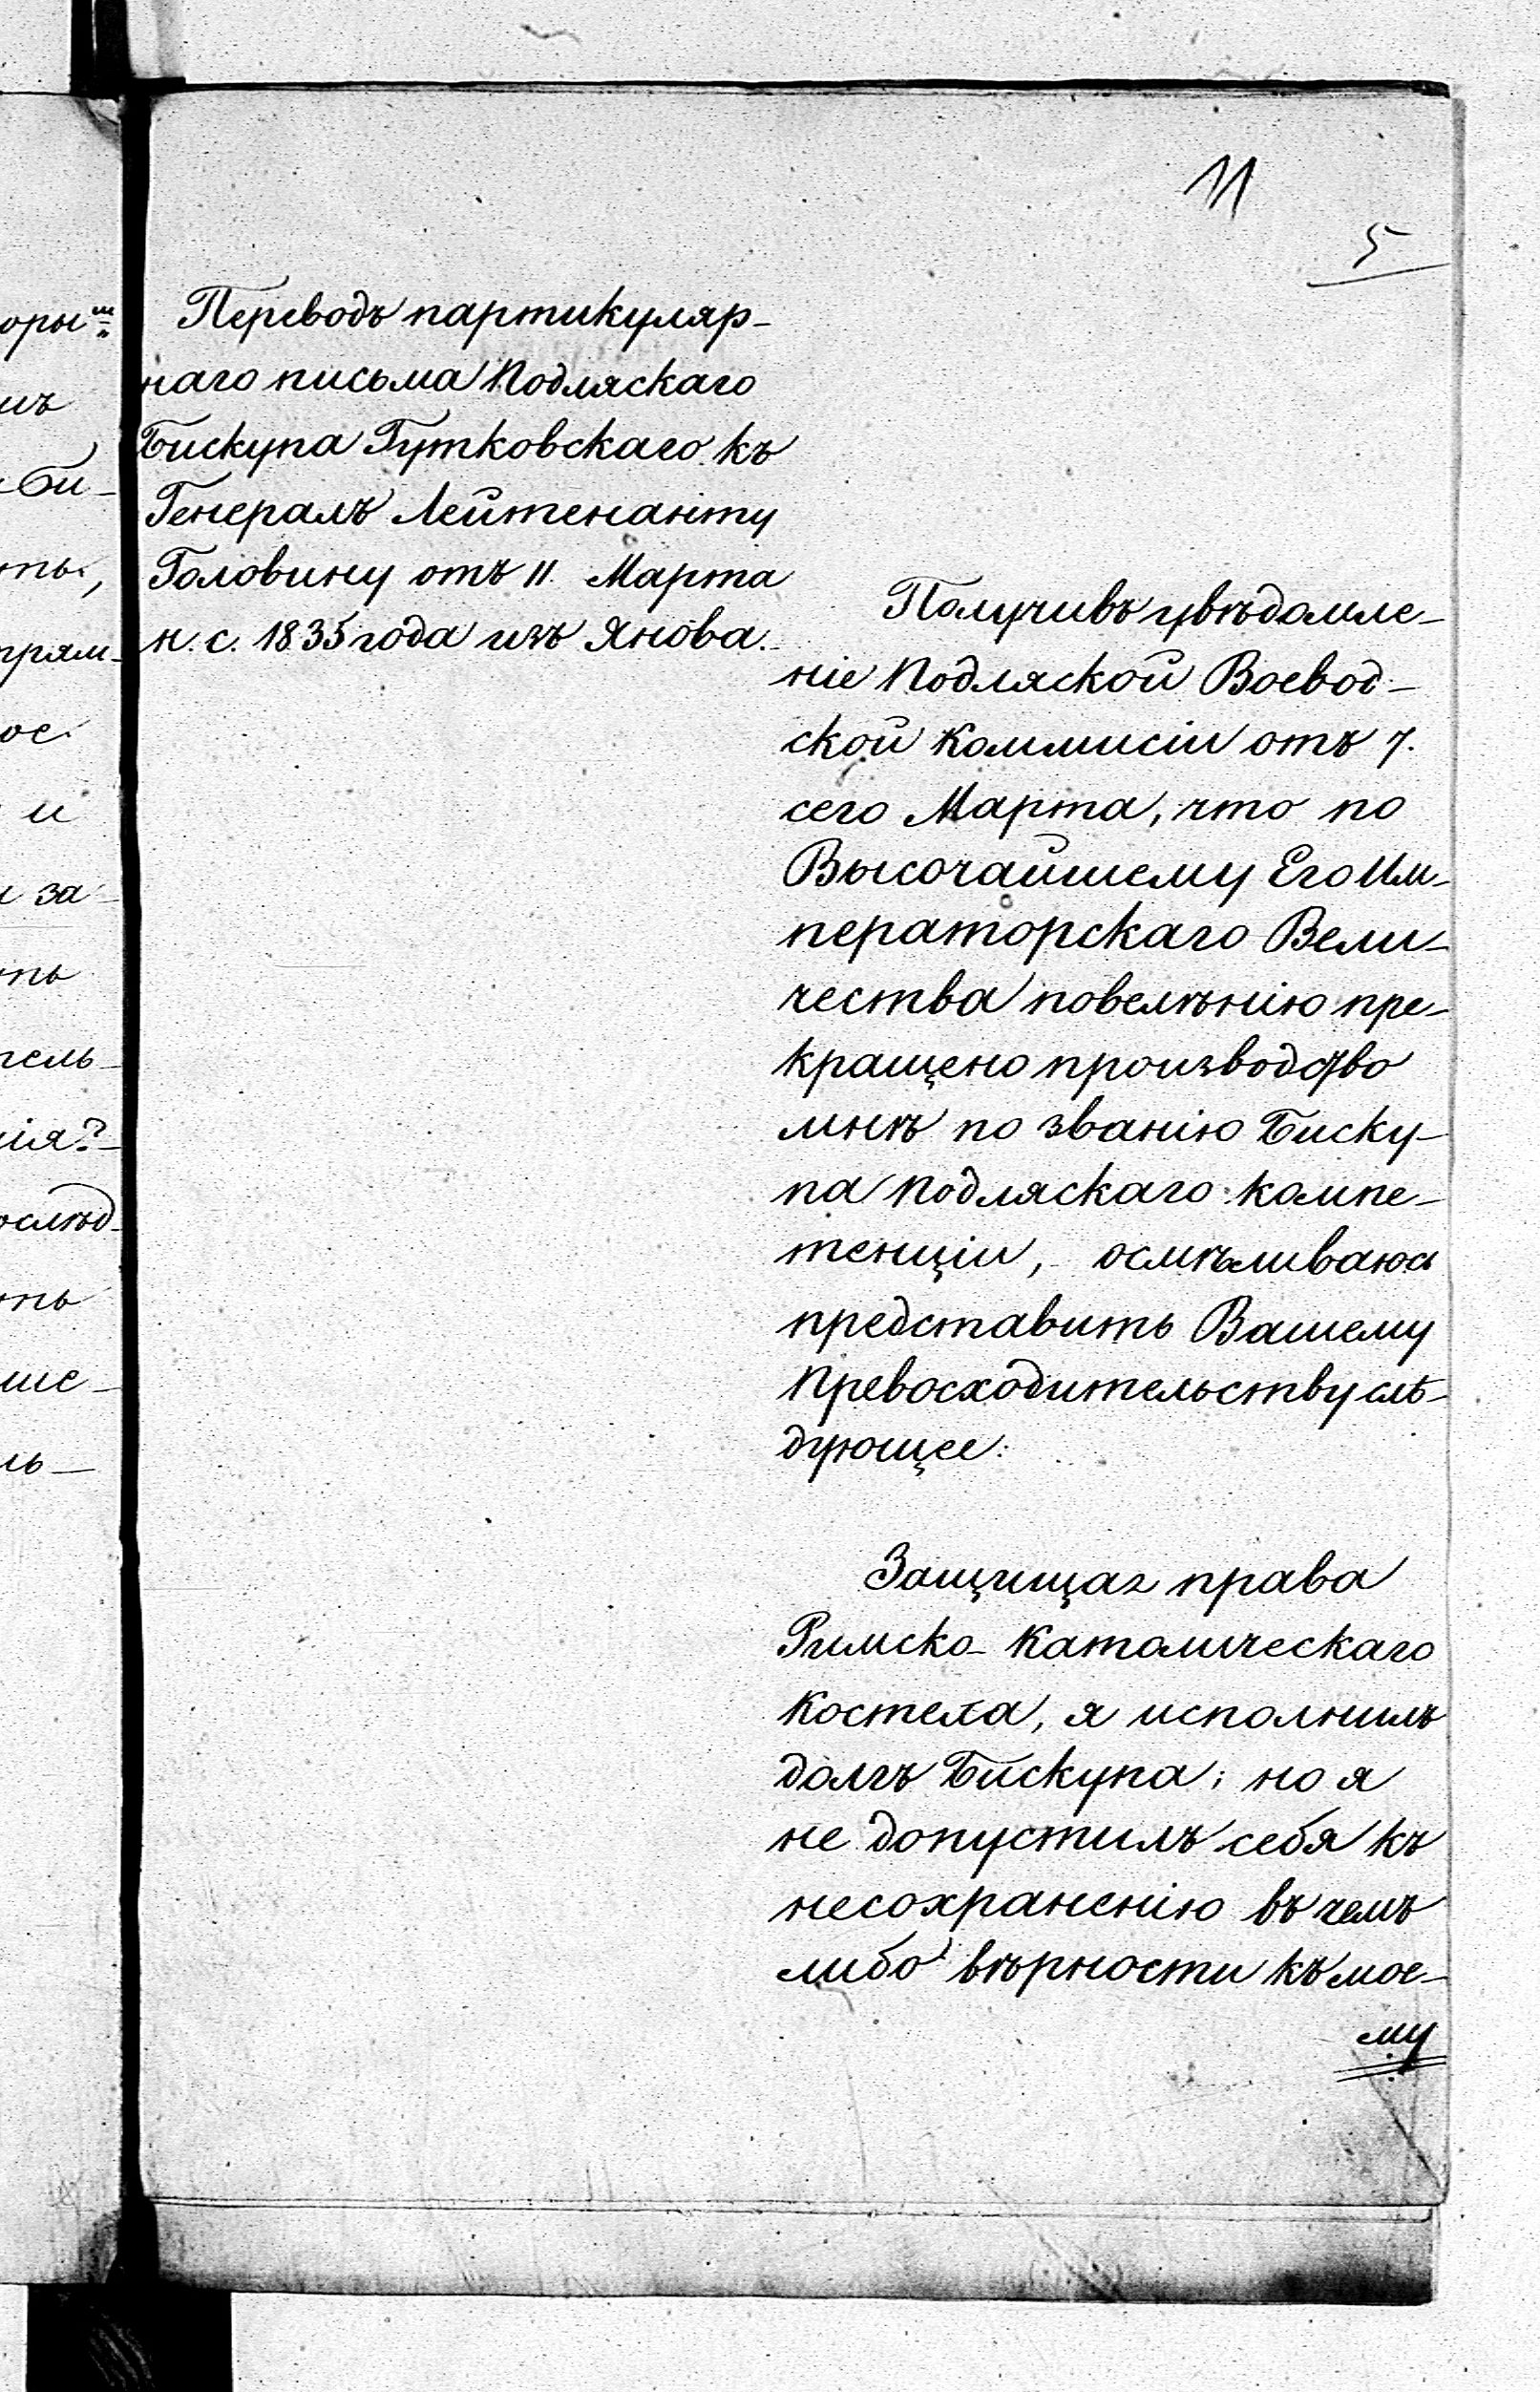 11
5
Переводъ партикуляр-
наго письма Подляскаго
Бискупа Гутковскаго къ
Генералъ Лейтенанту
Головину отъ 11. Марта
н. с. 1835 года изъ Янова.
Получивъ увѣдомле-
ніе Подляской Воевод-
ской Коммисіи отъ 7.
сего Марта, что по
Высочайшему Его Им-
ператорскаго Вели-
чества повелѣнію пре-
кращено производство
мнѣ по званію Биску-
па Подляскаго компе-
тенціи, осмѣливаюсь
представить Вашему
Превосходительству слѣ-
дующее:
Защищая права
Римско-Католическаго
Костела, я исполнилъ
долгъ Бискупа; но я
не допустилъ себя къ
несохраненію въ чемъ
либо вѣрности къ мое-
му